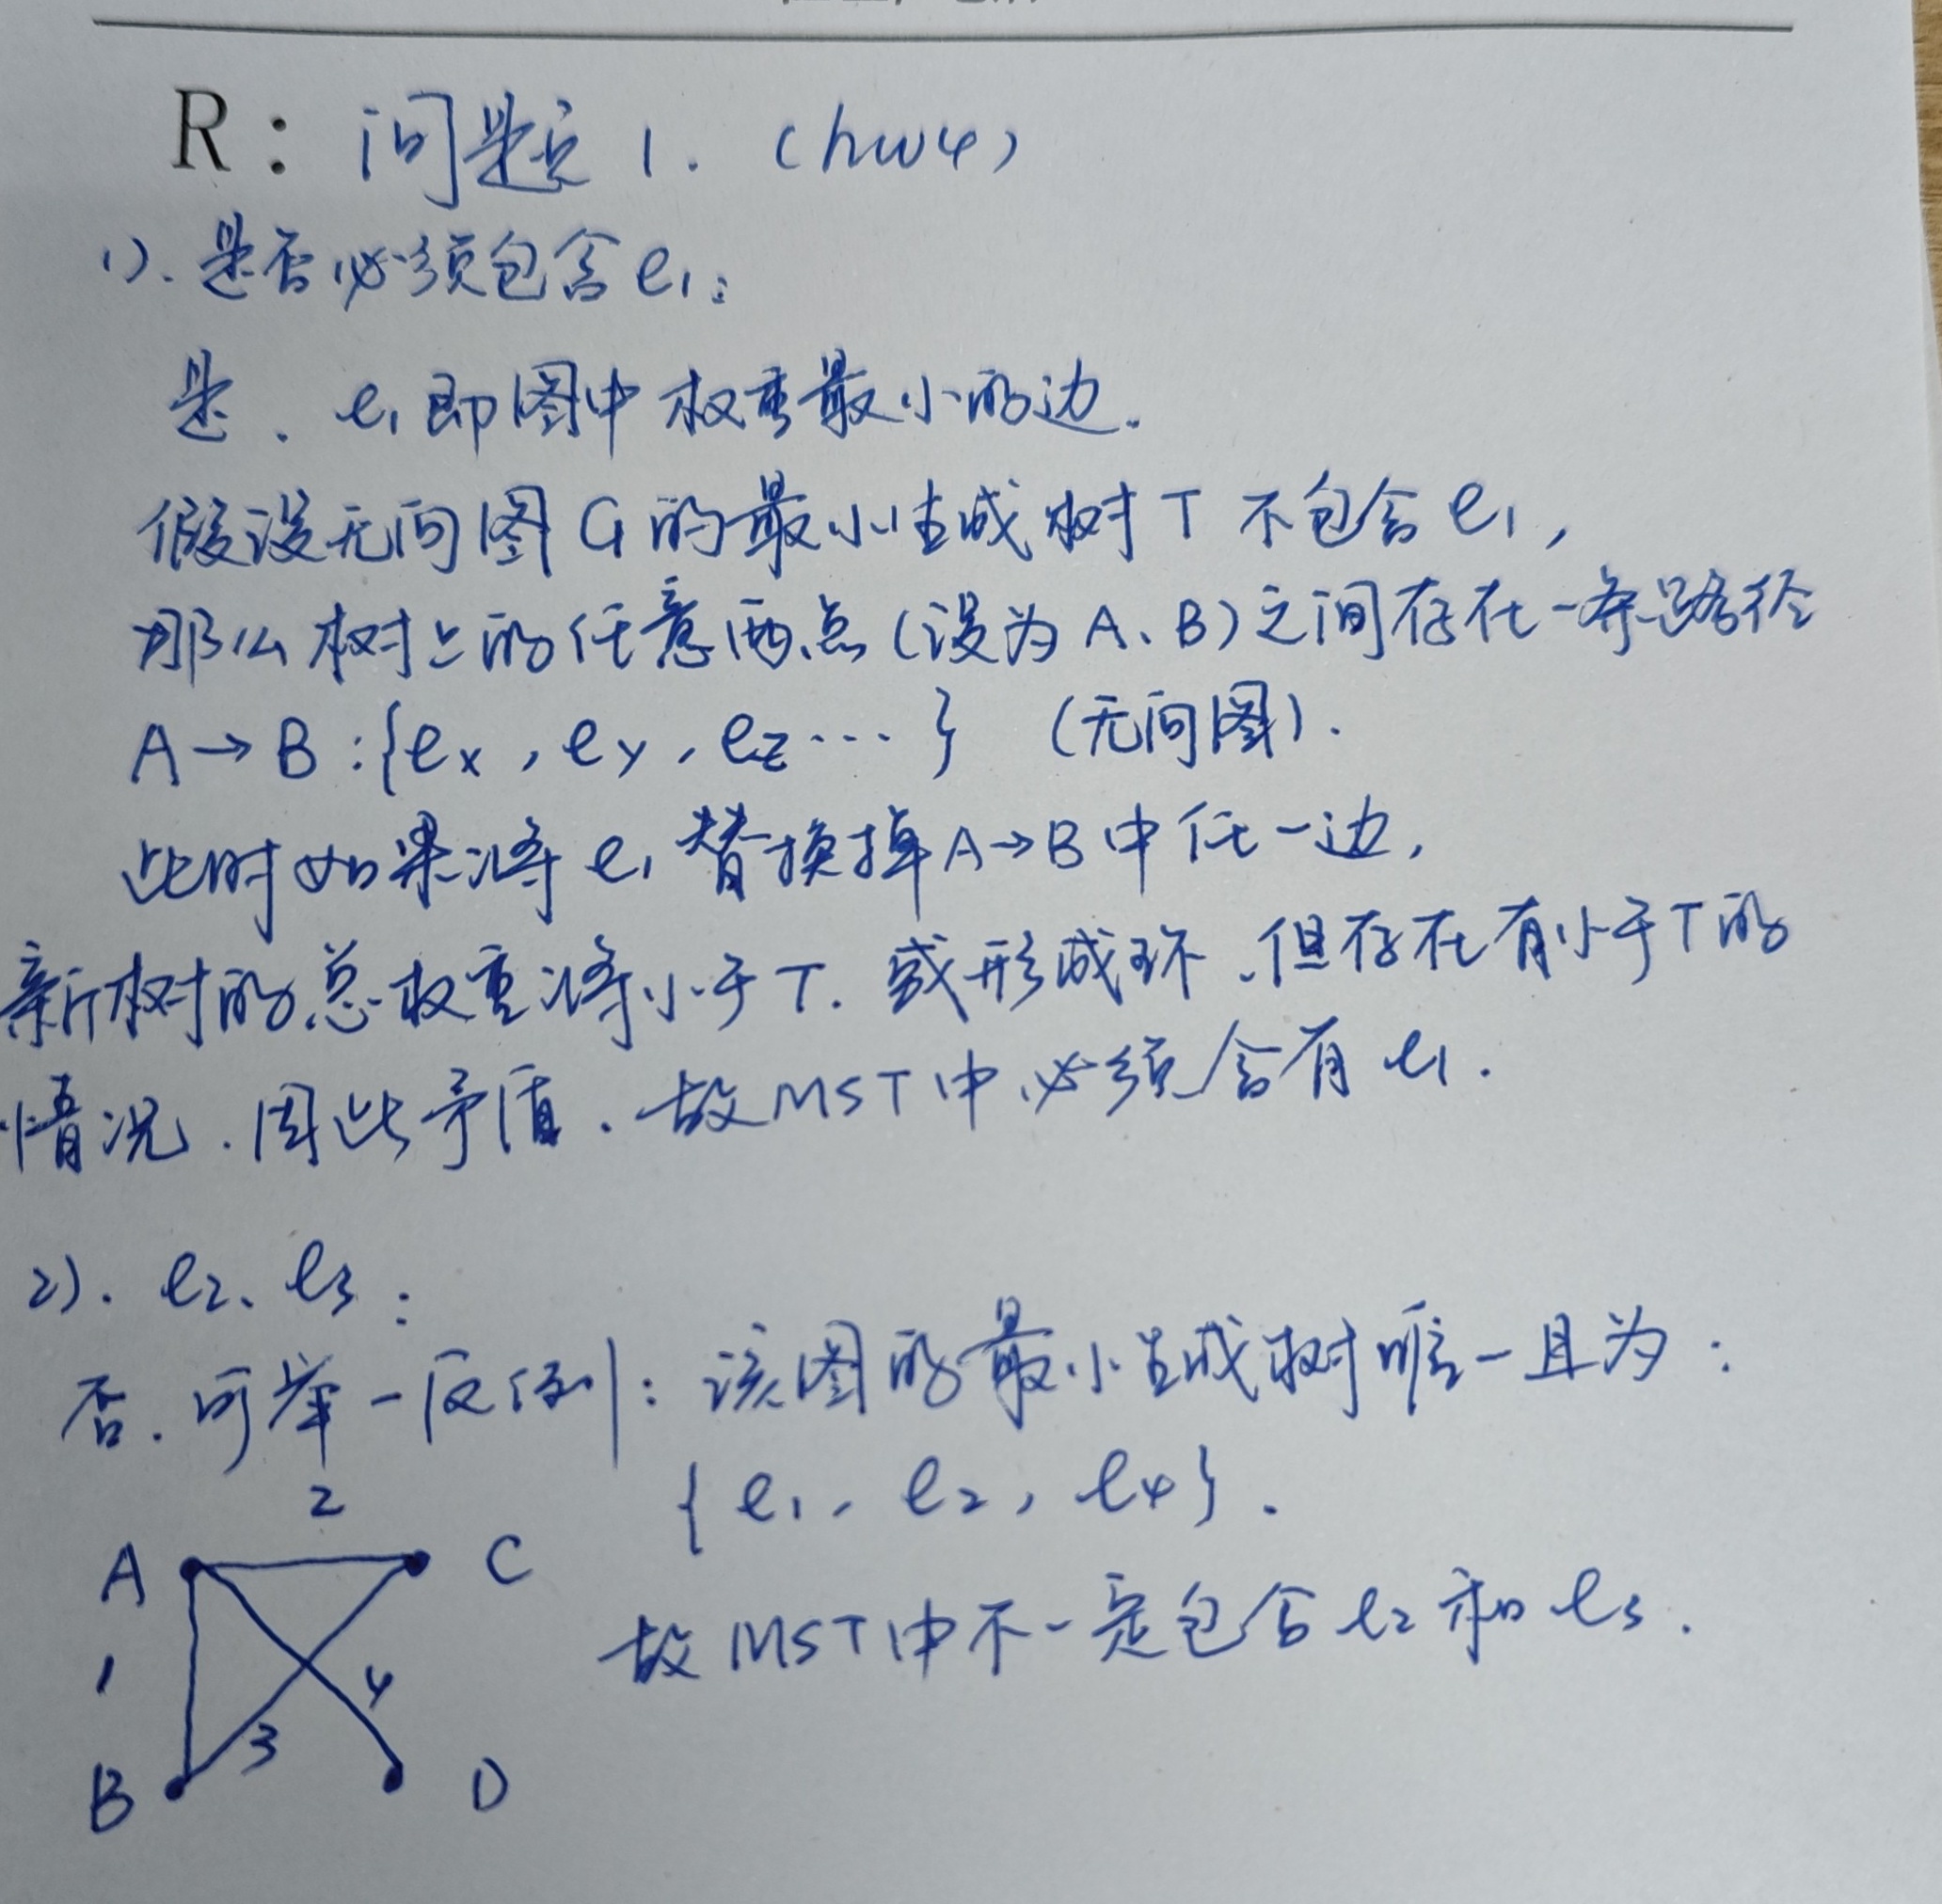 R: 问题1. (hw4)
1). 是否必须包含e₁:
是. e₁即图中权重最小的边.
假设无向图G的最小生成树T不包含e₁,
那么树上的任意两点(设为A、B)之间存在一条路径
A→B:{eₓ, eᵧ, e_z…} (无向图).
此时如果将e₁替换掉A→B中任一边,
新树的总权重将小于T. 或形成环.但存在有小于T的
情况.因此矛盾.故MST中必须含有e₁.
2). e₂、e₃:
否.可举一反例: 该图的最小生成树唯一且为:
{e₁, e₂, e₄}.
2
A C
故MST中不一定包含e₂和e₃.
1 4
3
B D